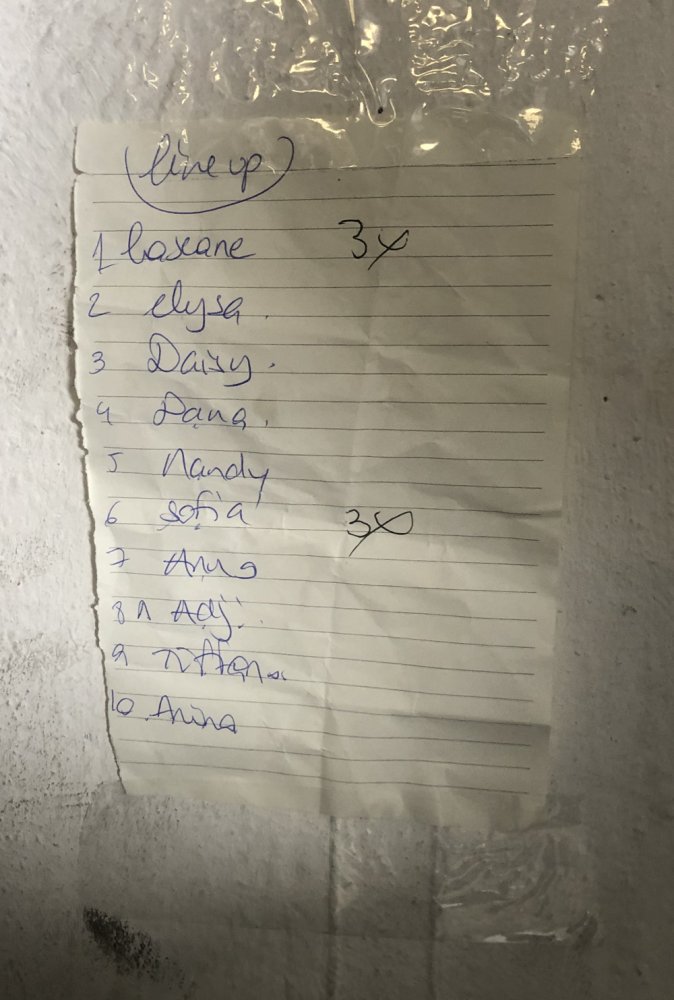 line up
1 Loxane 3x
2 elysa.
3 Daisy.
4 Dana.
5 Mandy
6 Sofia 3x
7 Anna
8 Adji
9 Tiffan
10. Anina